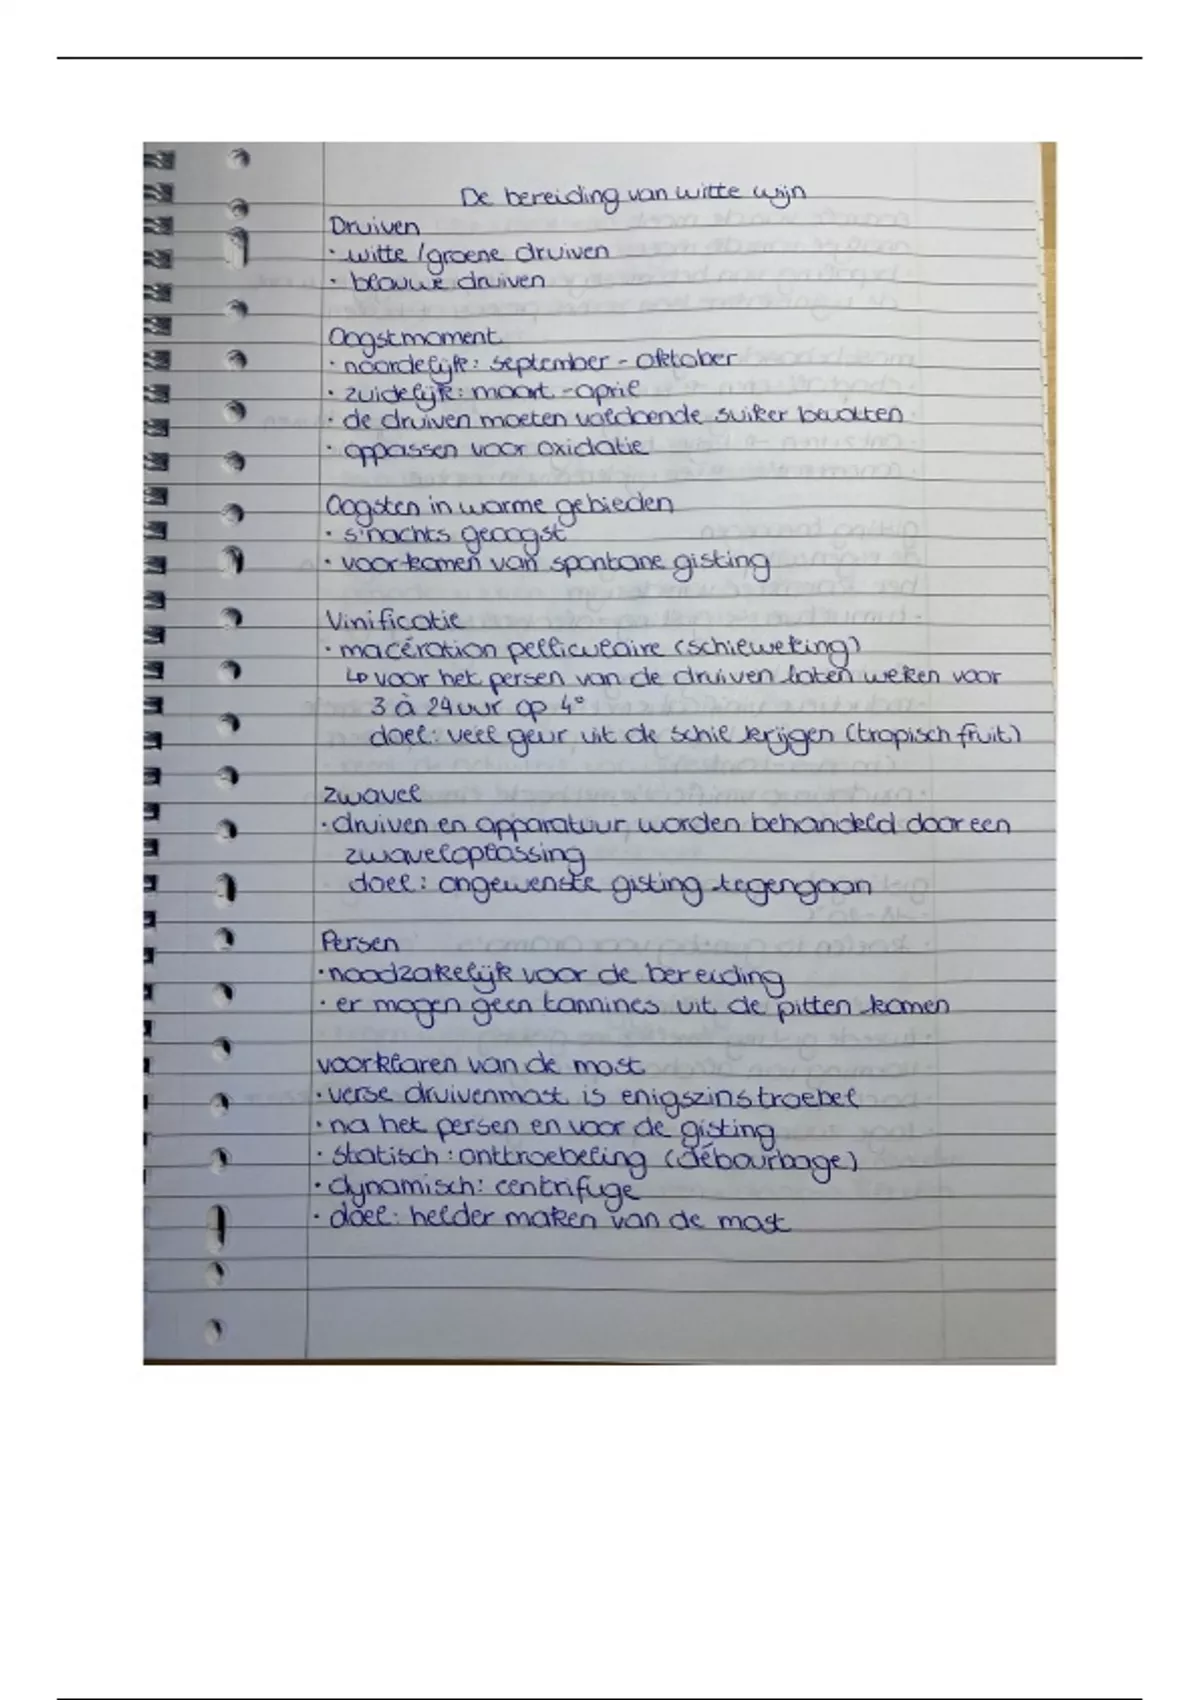 De bereiding van witte wijn
Druiven
· witte / groene druiven
· blauwe druiven
Oogstmoment
· noordelijk: september - oktober
· zuidelijk: maart - april
· de druiven moeten voldoende suiker bevatten
· oppassen voor oxidatie
Oogsten in warme gebieden
· s'nachts geoogst
· voorkomen van spontane gisting
Vinificatie
· macération pelliculaire (schilweking)
↳ voor het persen van de druiven laten weken voor
3 à 24 uur op 4°
doel: veel geur uit de schil krijgen (tropisch fruit)
Zwavel
· druiven en apparatuur worden behandeld door een
zwaveloplossing
doel: ongewenste gisting tegengaan
Persen
· noodzakelijk voor de bereiding
· er mogen geen tannines uit de pitten komen
voorklaren van de most
· verse druivenmost is enigszins troebel
· na het persen en voor de gisting
· statisch: onttroebeling (débourbage)
· dynamisch: centrifuge
· doel: helder maken van de most